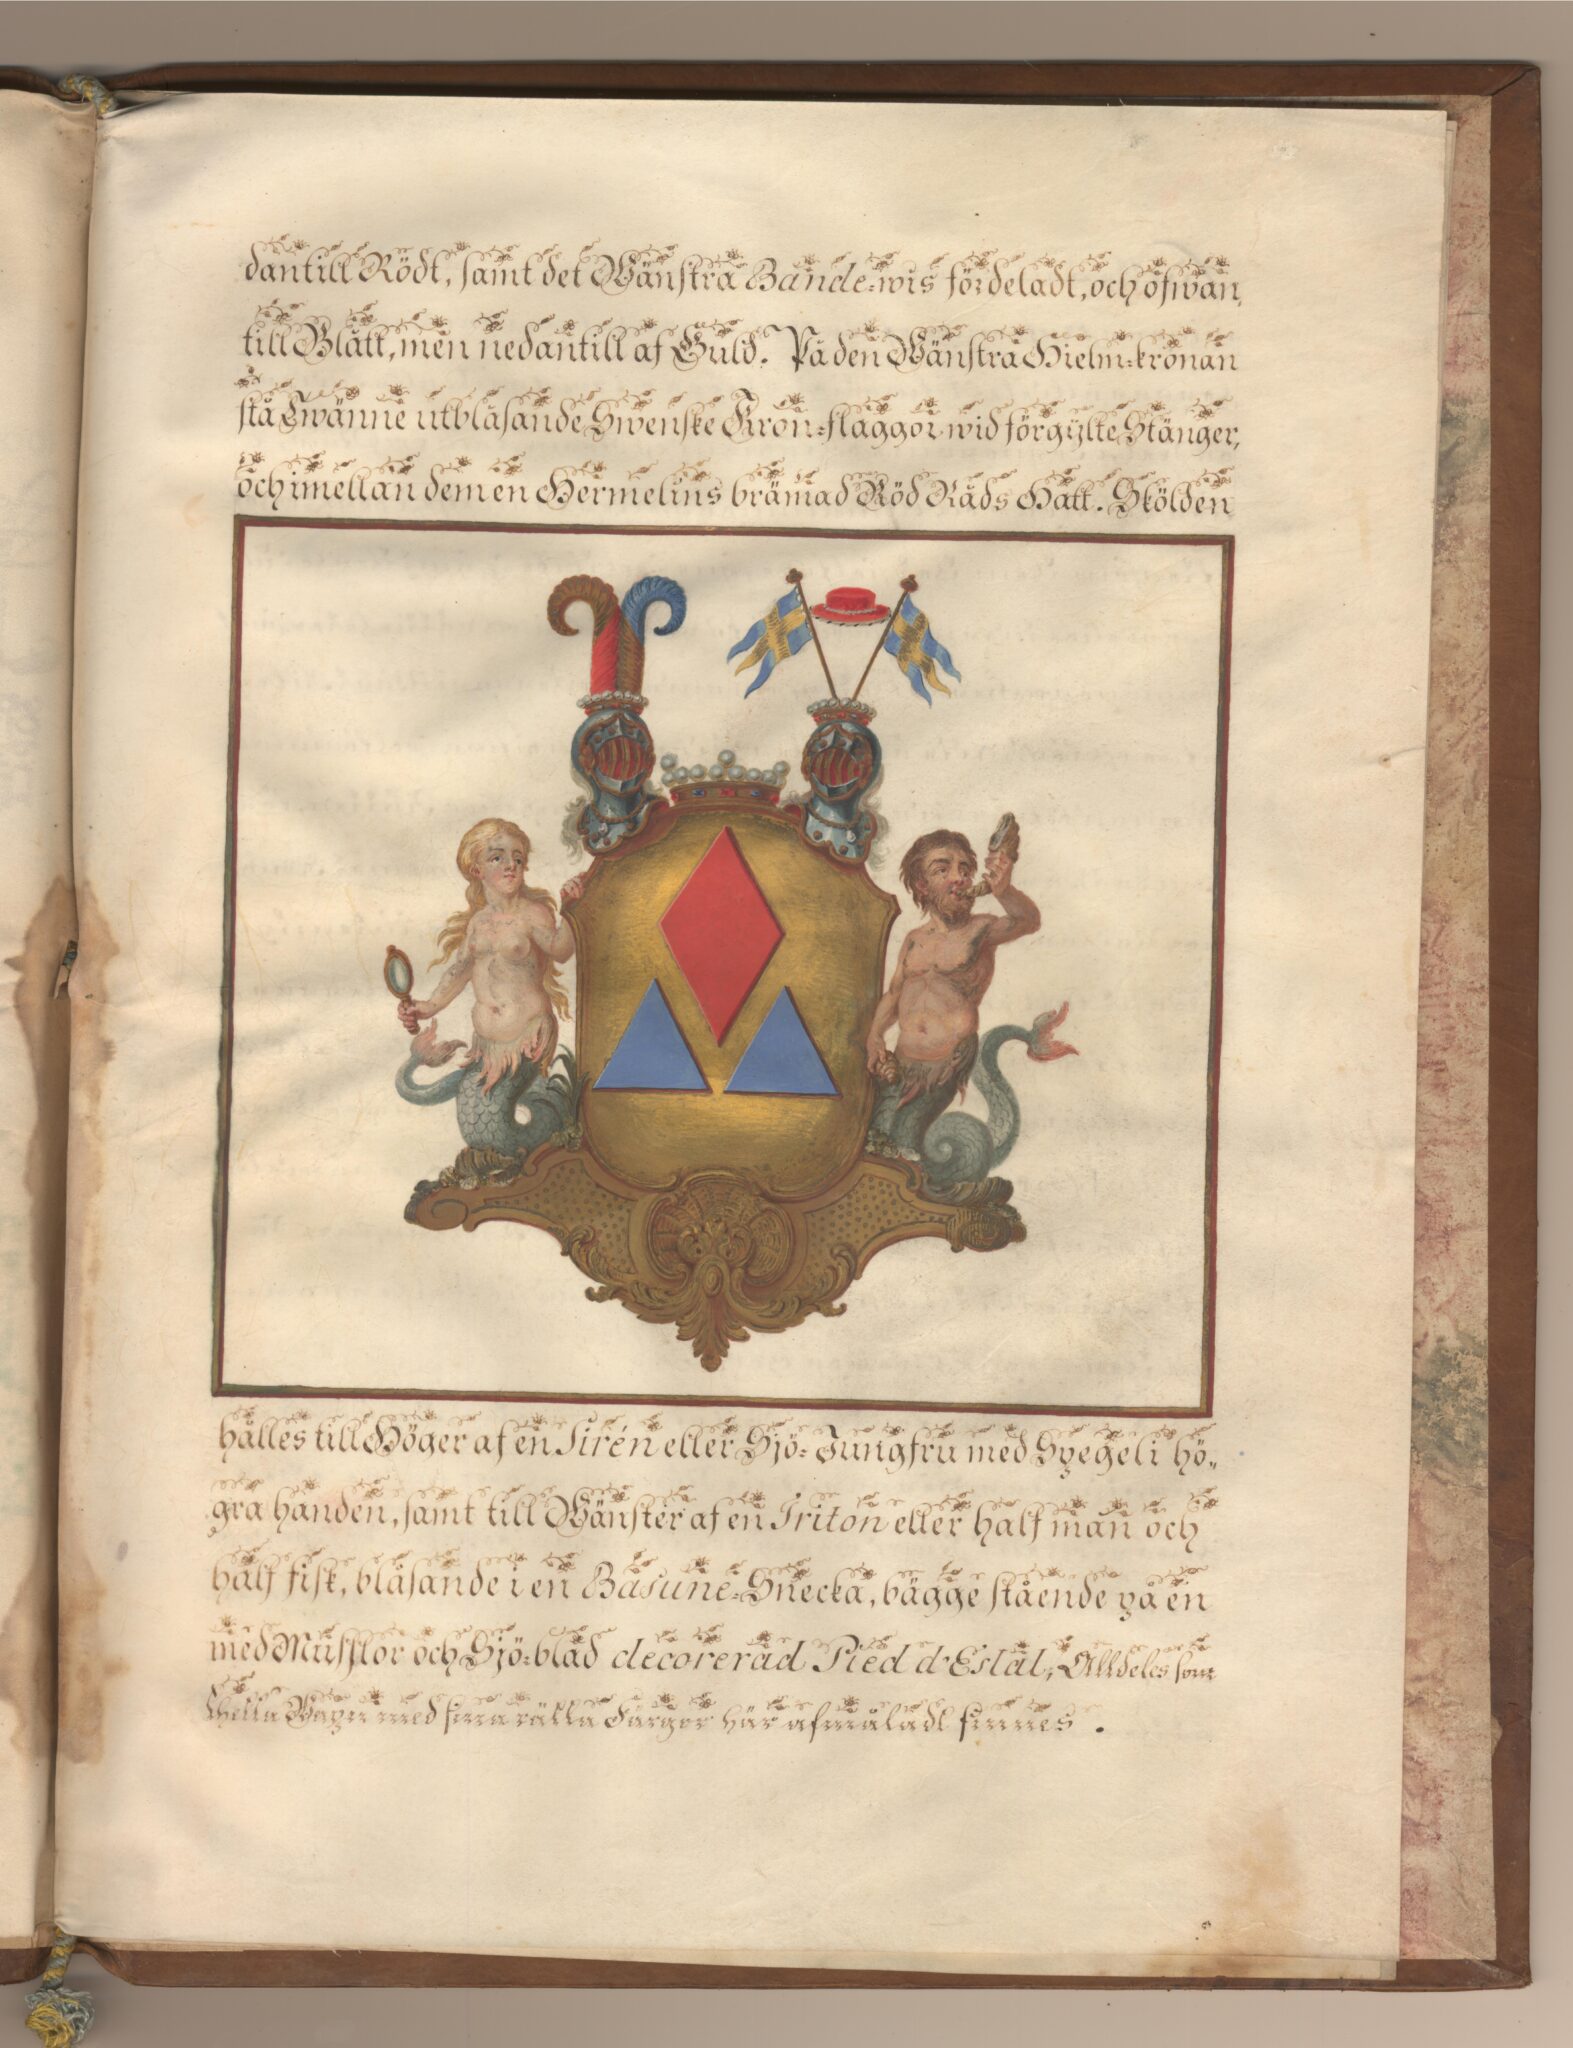 dantill Rödt, samt det Wänstra Bande-wis fördeladt, och ofwan,
till Blått, men nedantill af Guld. På den Wänstra Hielm-kronan
stå Twänne utblåsande Swenske Kron-flaggor wid förgylte Stänger,
och imellan dem en Hermelins brämad Röd Råds Hatt. Skölden
hålles till Höger af en Sirén eller Sjö-Jungfru med Spegel i hö„
gra handen, samt till Wänster af en Triton eller half man och
half fisk, blåsande i en Basune-Snecka, bägge stående på en
med Musslor och Sjö-blad decorerad Pied d'Estal, Alldeles som
thetta Wapn med sina rätta Färgor här afmåladt finnes.